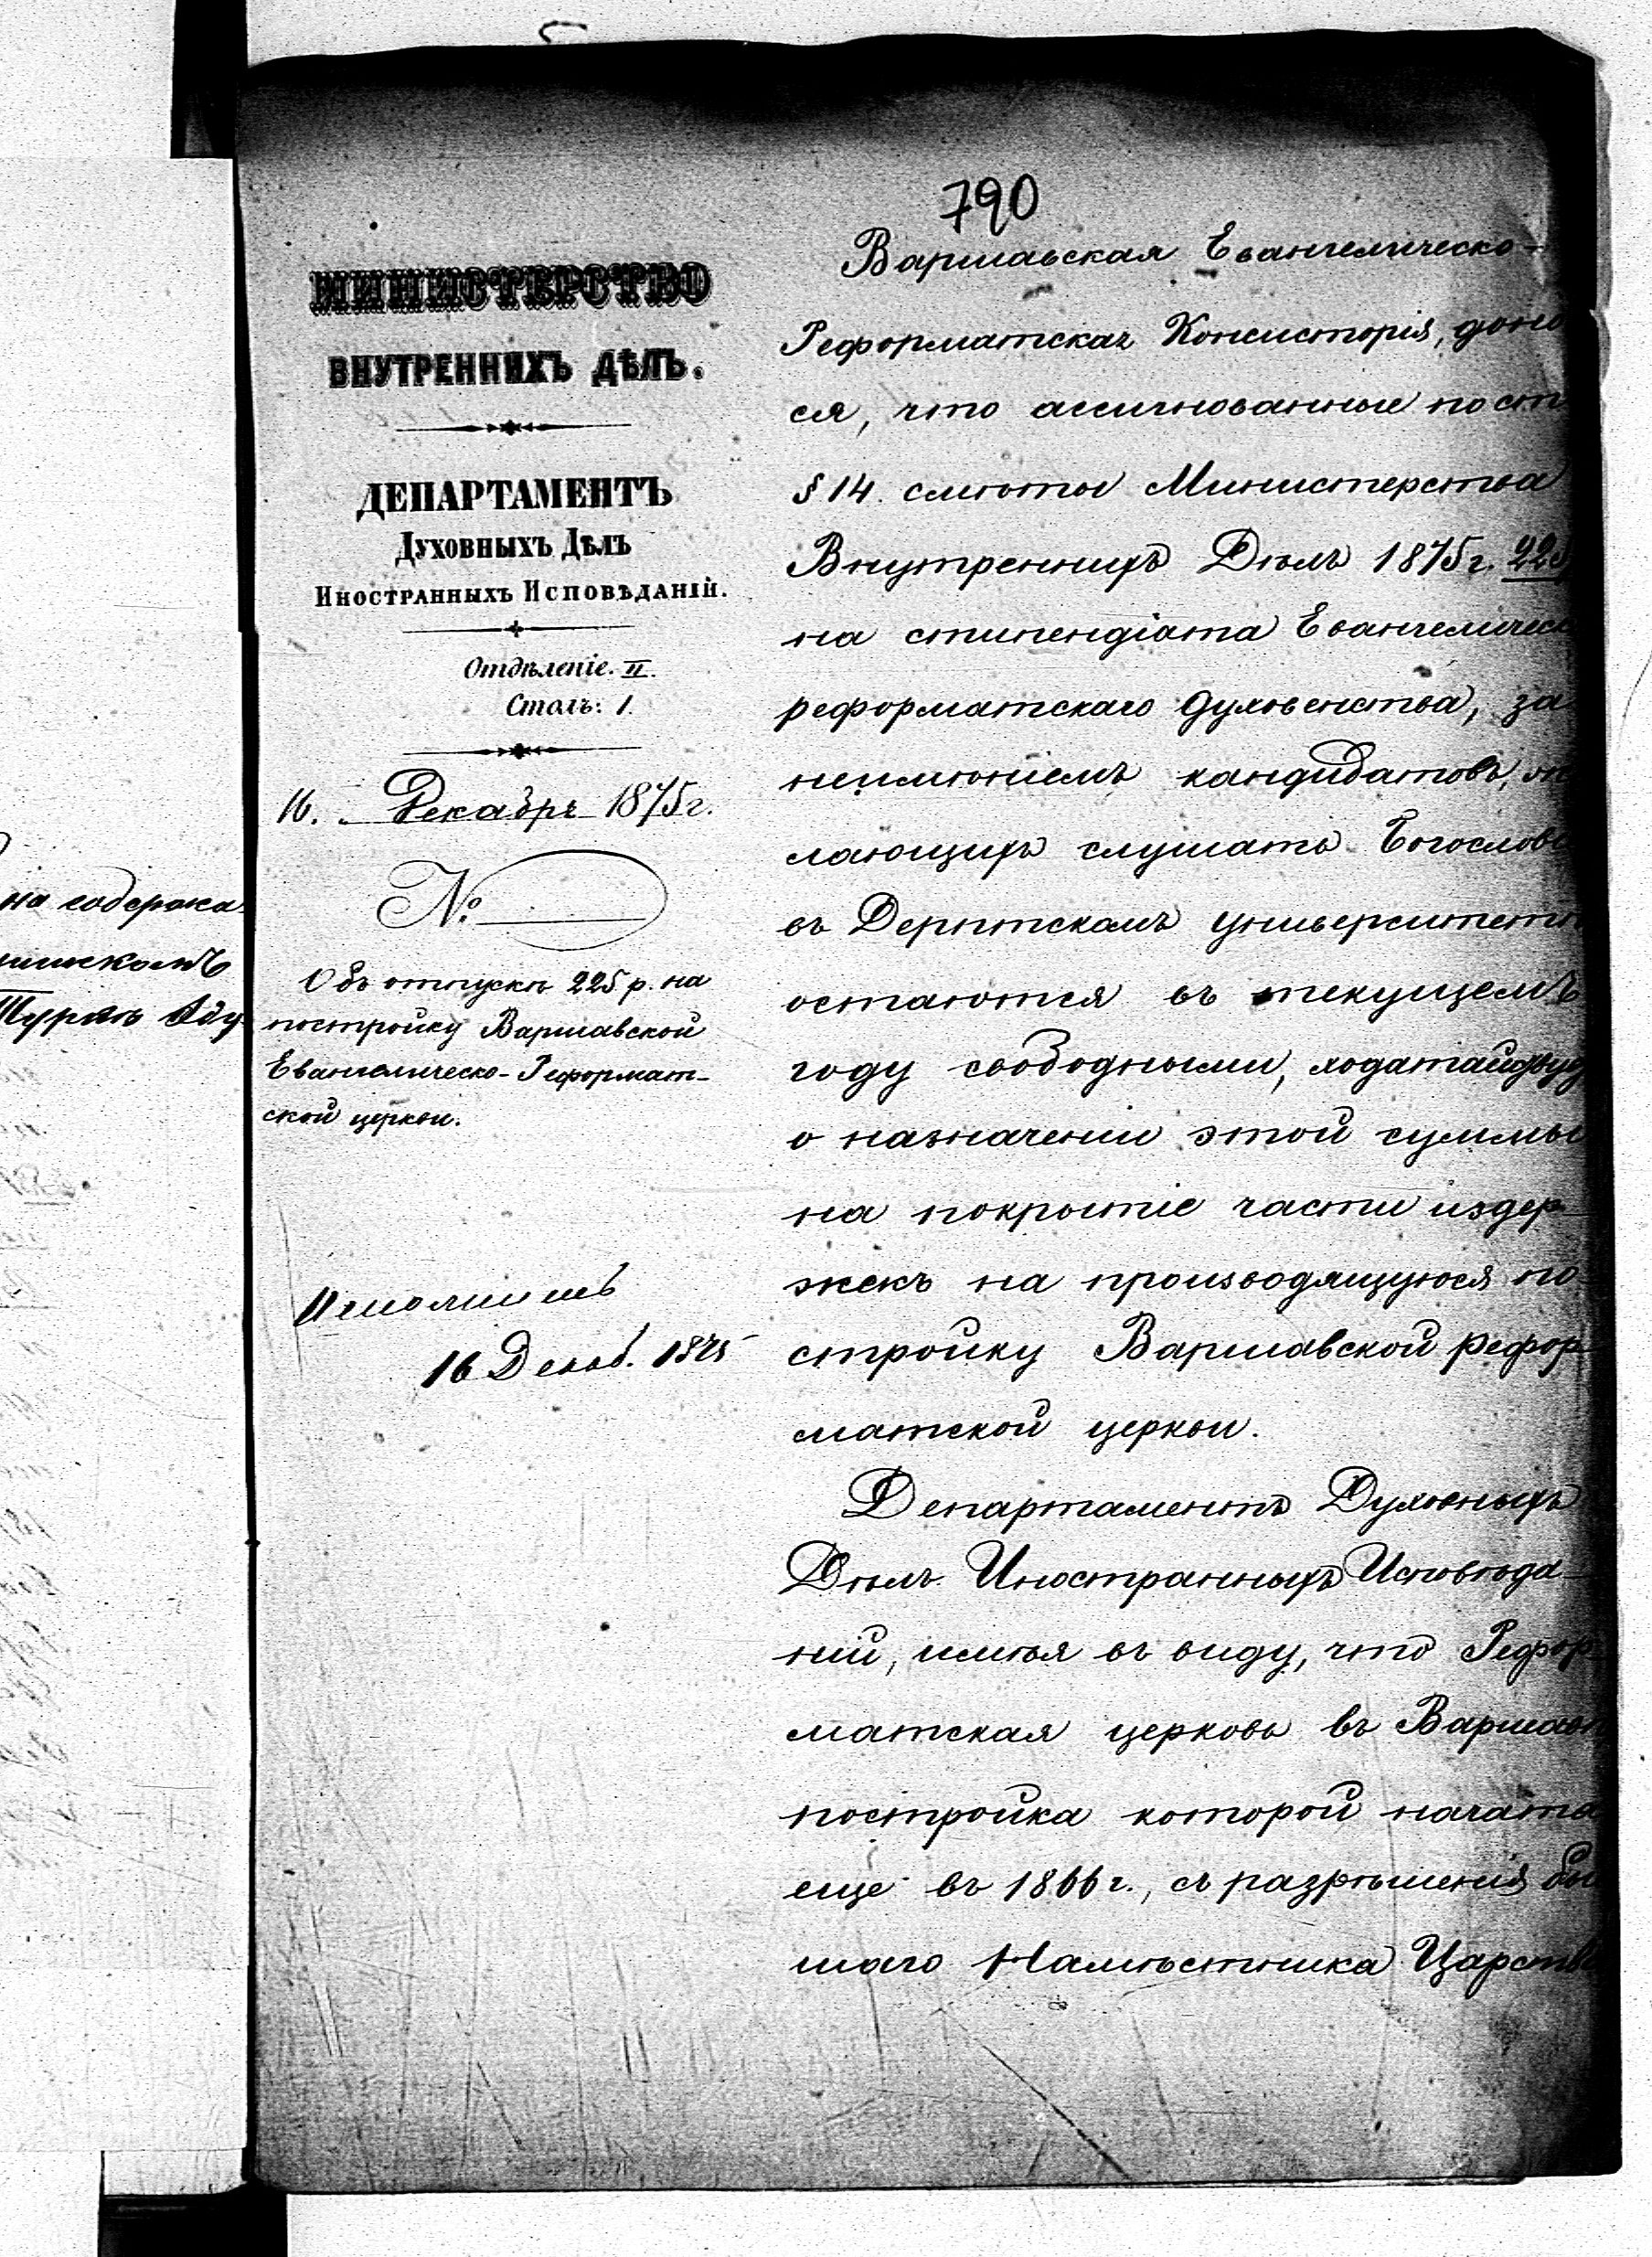 790
МИНИСТЕРСТВО
ВНУТРЕННИХЪ ДѢЛЪ.
ДЕПАРТАМЕНТЪ
ДУХОВНЫХЪ ДѢЛЪ
ИНОСТРАННЫХЪ ИСПОВѢДАНІЙ.
Отдѣленіе. II.
Столъ: 1.
16. Декабрь 1875 г.
№
Объ отпускѣ 225 р. на
постройку Варшавской
Евангелическо-Реформат-
ской церкви.
16 Декаб. 1875
на содержа
Варшавская Евангелическо-
Реформатская Консисторія, доно
ся, что ассигнованные по ст
§ 14. смѣты Министерства
Внутреннихъ Дѣлъ 1875 г. 225
на стипендіата Евангелическ
реформатскаго духовенства, за
неимѣніемъ кандидатовъ,
лающихъ слушать Богослові
въ Дерптскомъ университетѣ
остаются въ текущемъ
году свободными, ходатайствуе
о назначеніи этой суммы
на покрытіе части издер-
жекъ на производящуюся по-
стройку Варшавской рефор-
матской церкви.
Департаментъ Духовныхъ
Дѣлъ Иностранныхъ Исповѣда-
ній, имѣя въ виду, что Рефор-
матская церковь въ Варшавѣ
постройка которой начата
еще въ 1866 г., съ разрѣшенія быв
шаго Намѣстника Царства